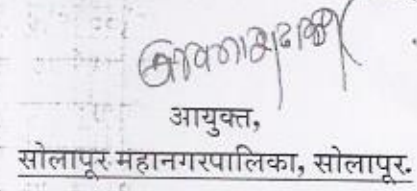 आयुक्त,
सोलापूर महानगरपालिका, सोलापूर.